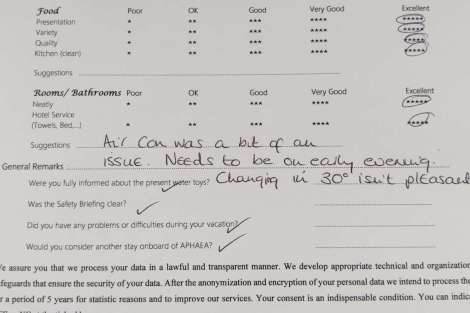 Food Poor OK Good Very Good Excellent
Presentation * ** *** **** *****
Variety * ** *** **** *****
Quality * ** *** **** *****
Kitchen (clean) * ** *** **** *****
Suggestions
Rooms/ Bathrooms Poor OK Good Very Good Excellent
Neatly * ** *** **** *****
Hotel Service
(Towels, Bed,...) * ** *** **** *****
Suggestions Air Con was a bit of an
General Remarks issue. Needs to be on early evening.
Were you fully informed about the present water toys? Changing in 30° isn't pleasant
Was the Safety Briefing clear?
Did you have any problems or difficulties during your vacation?
Would you consider another stay onboard of APHAEA?
We assure you that we process your data in a lawful and transparent manner. We develop appropriate technical and organization
safeguards that ensure the security of your data. After the anonymization and encryption of your personal data we intend to process the
r a period of 5 years for statistic reasons and to improve our services. Your consent is an indispensable condition. You can indic